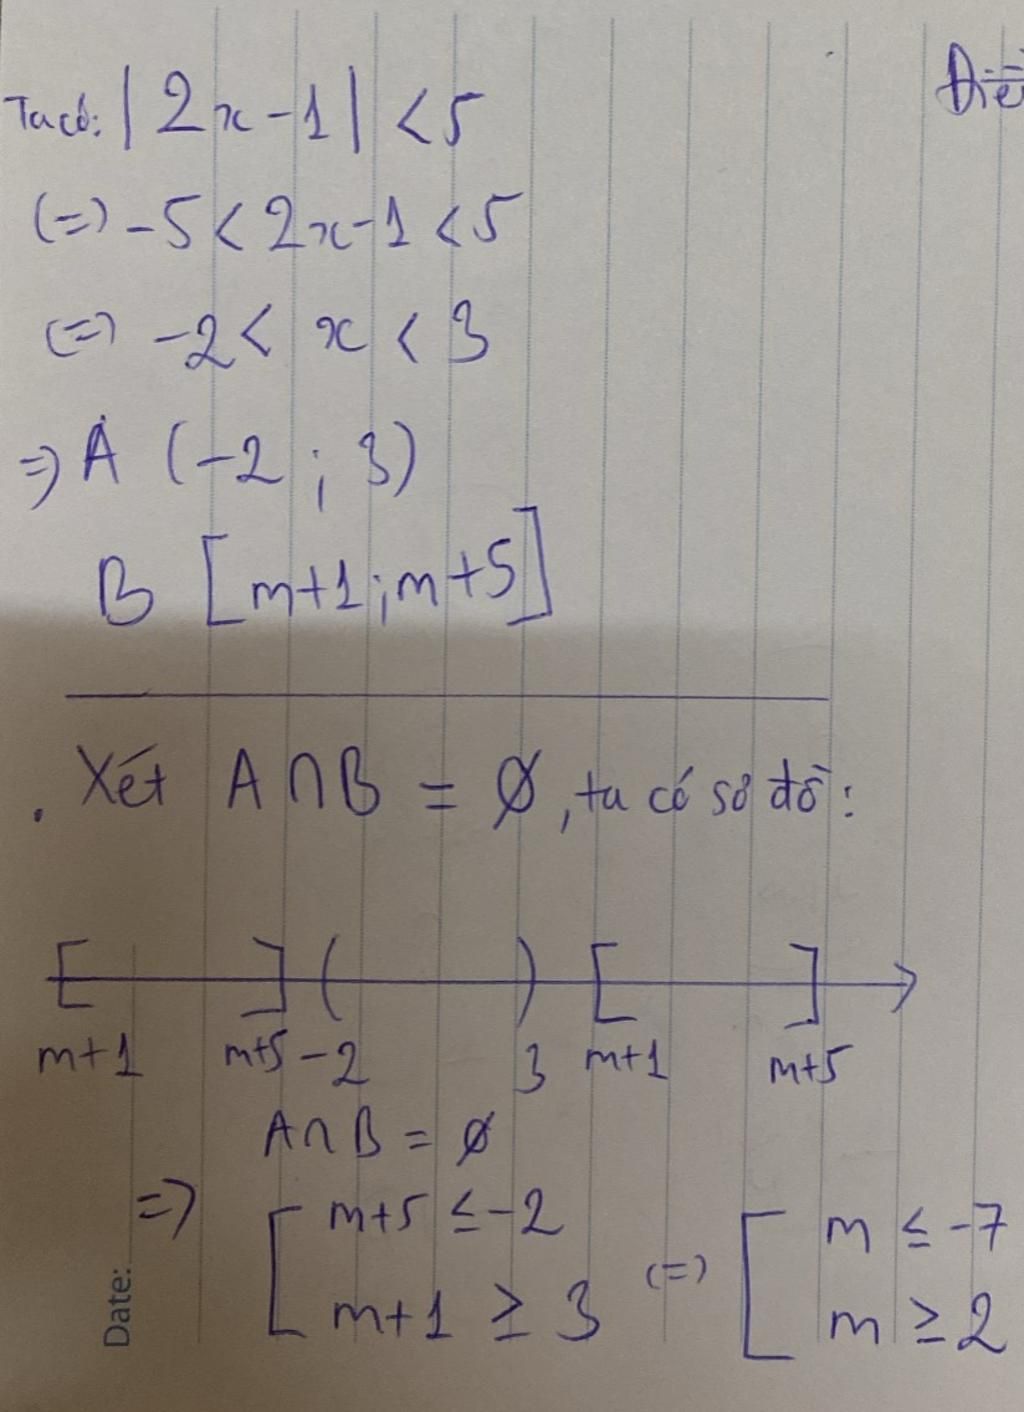 Ta có: |2x-1| < 5
(=) -5 < 2x-1 < 5
(=) -2 < x < 3
=) A (-2 ; 3)
B [m+1 ; m+5]
. Xét A ∩ B = ∅, ta có sơ đồ:
[ ] ( ) [ ]
m+1 m+5 -2 3 m+1 m+5
A ∩ B = ∅
=) [ m+5 ≤ -2 (=) [ m ≤ -7
m+1 ≥ 3 m ≥ 2
Date: